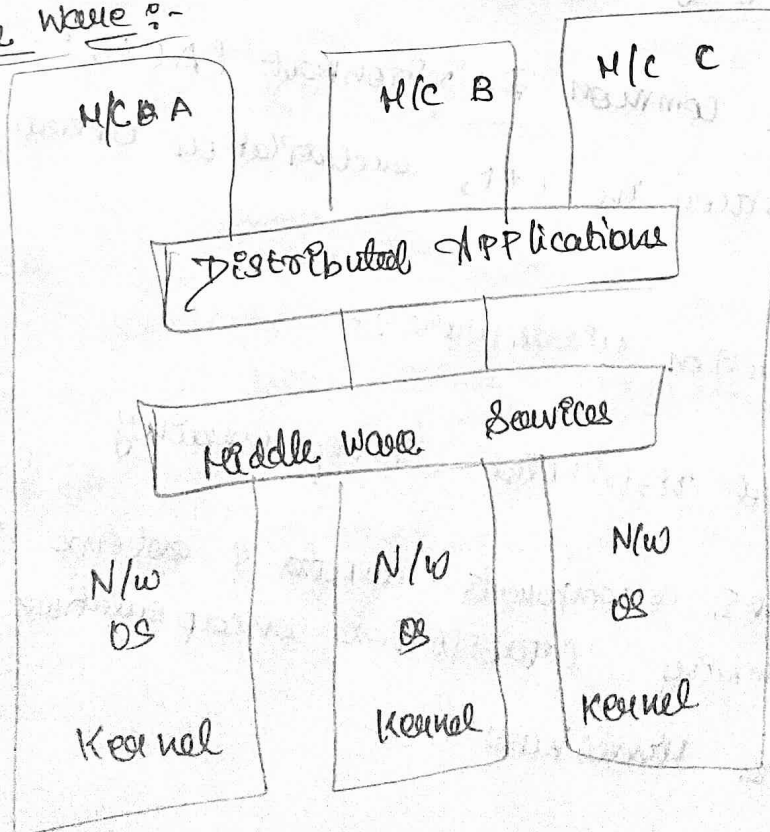 Ware :-
M/C A M/C B M/C C
Distributed Applications
Middle Ware Services
N/W N/W N/W
OS OS OS
Kernel Kernel Kernel